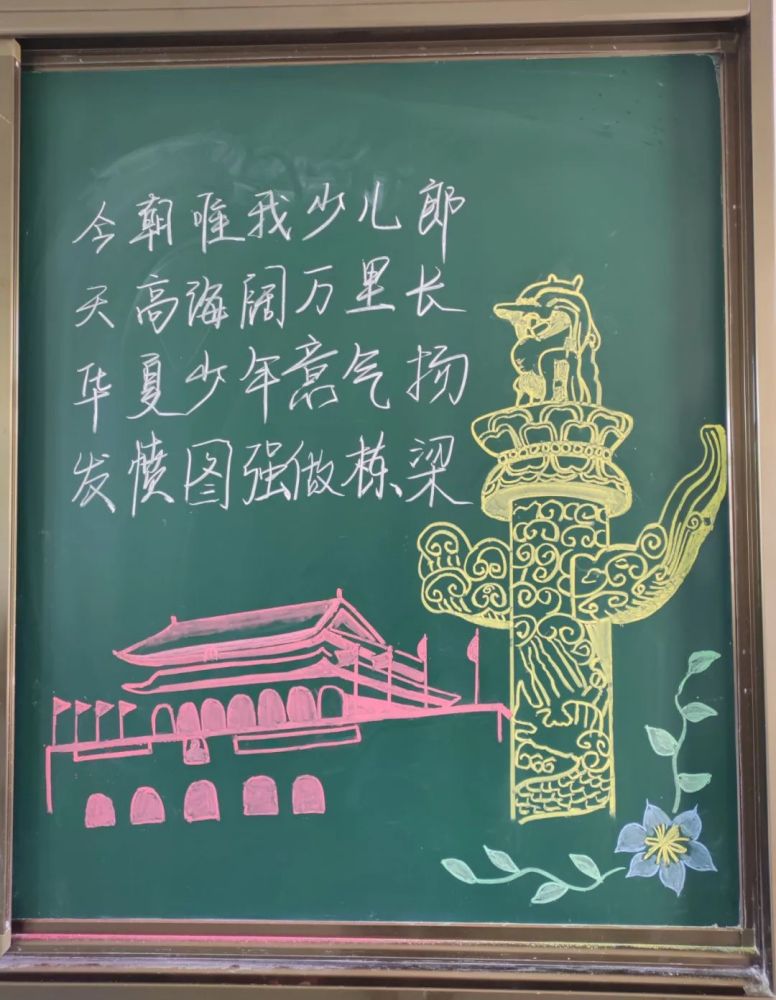 今朝唯我少儿郎
天高海阔万里长
华夏少年意气扬
发愤图强做栋梁